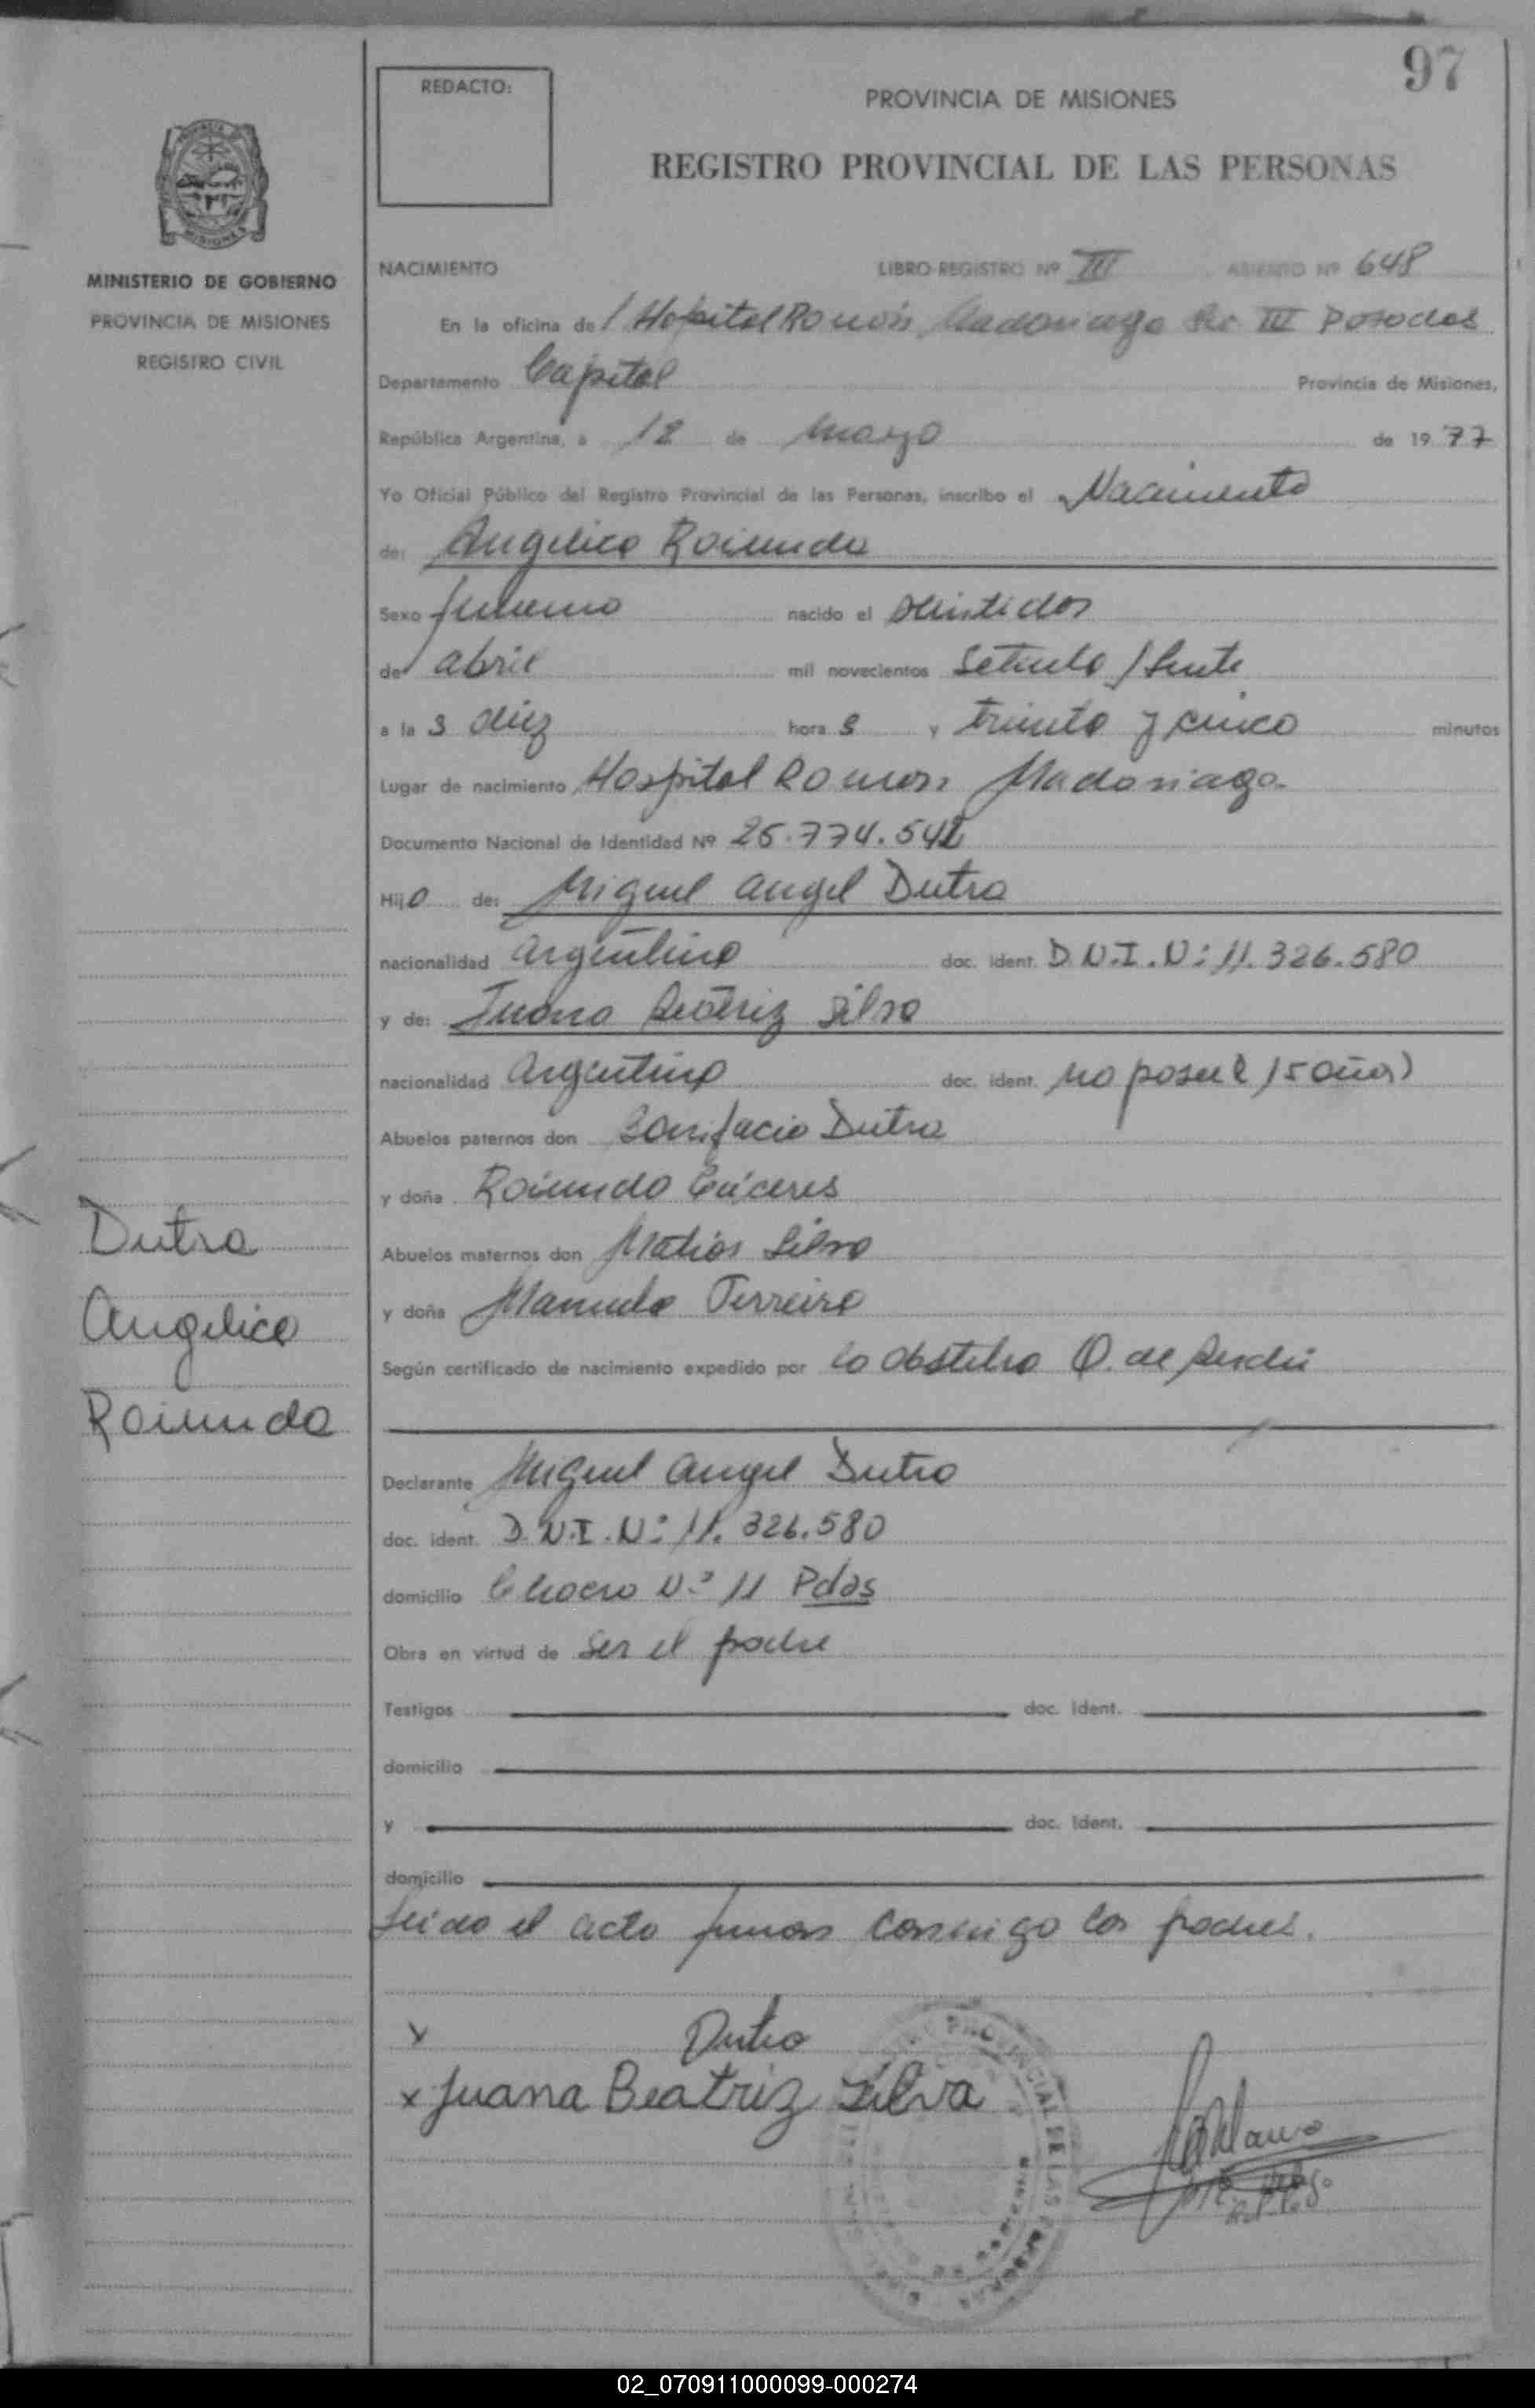 97
REDACTO:
PROVINCIA DE MISIONES
REGISTRO PROVINCIAL DE LAS PERSONAS
MISIONES
MINISTERIO DE GOBIERNO
PROVINCIA DE MISIONES
REGISTRO CIVIL
NACIMIENTO LIBRO REGISTRO Nº III ASIENTO Nº 648
En la oficina del Hospital Ramón Madariaga Sec III Posadas
Departamento Capital Provincia de Misiones,
República Argentina, a 12 de mayo de 1977
Yo Oficial Público del Registro Provincial de las Personas, inscribo el Nacimiento
de: Angelica Raimunda
Sexo femenino nacido el veintidos
de abril mil novecientos setenta y siete
a las diez horas y treinta y cinco minutos
Lugar de nacimiento Hospital Ramon Madariaga
Documento Nacional de Identidad Nº 25.774.542
Hijo de: Miguel Angel Dutra
nacionalidad argentino doc. ident. D.N.I. Nº 11.326.580
y de: Juana Beatriz Silva
nacionalidad argentina doc. ident. no posee (15 años)
Abuelos paternos don Bonifacio Dutra
y doña Raimunda Cáceres
Abuelos maternos don Matias Silva
y doña Manuela Ferreira
Según certificado de nacimiento expedido por la obstetra O. de
Dutra
Angelica
Raimunda
Declarante Miguel Angel Dutra
doc. ident. D.N.I. Nº 11.326.580
domicilio Chacra Nº 11 Pdas
Obra en virtud de ser el padre
Testigos doc. ident.
domicilio
y doc. ident.
domicilio
Leida el acta firman conmigo los padres.
x Dutra
x Juana Beatriz Silva